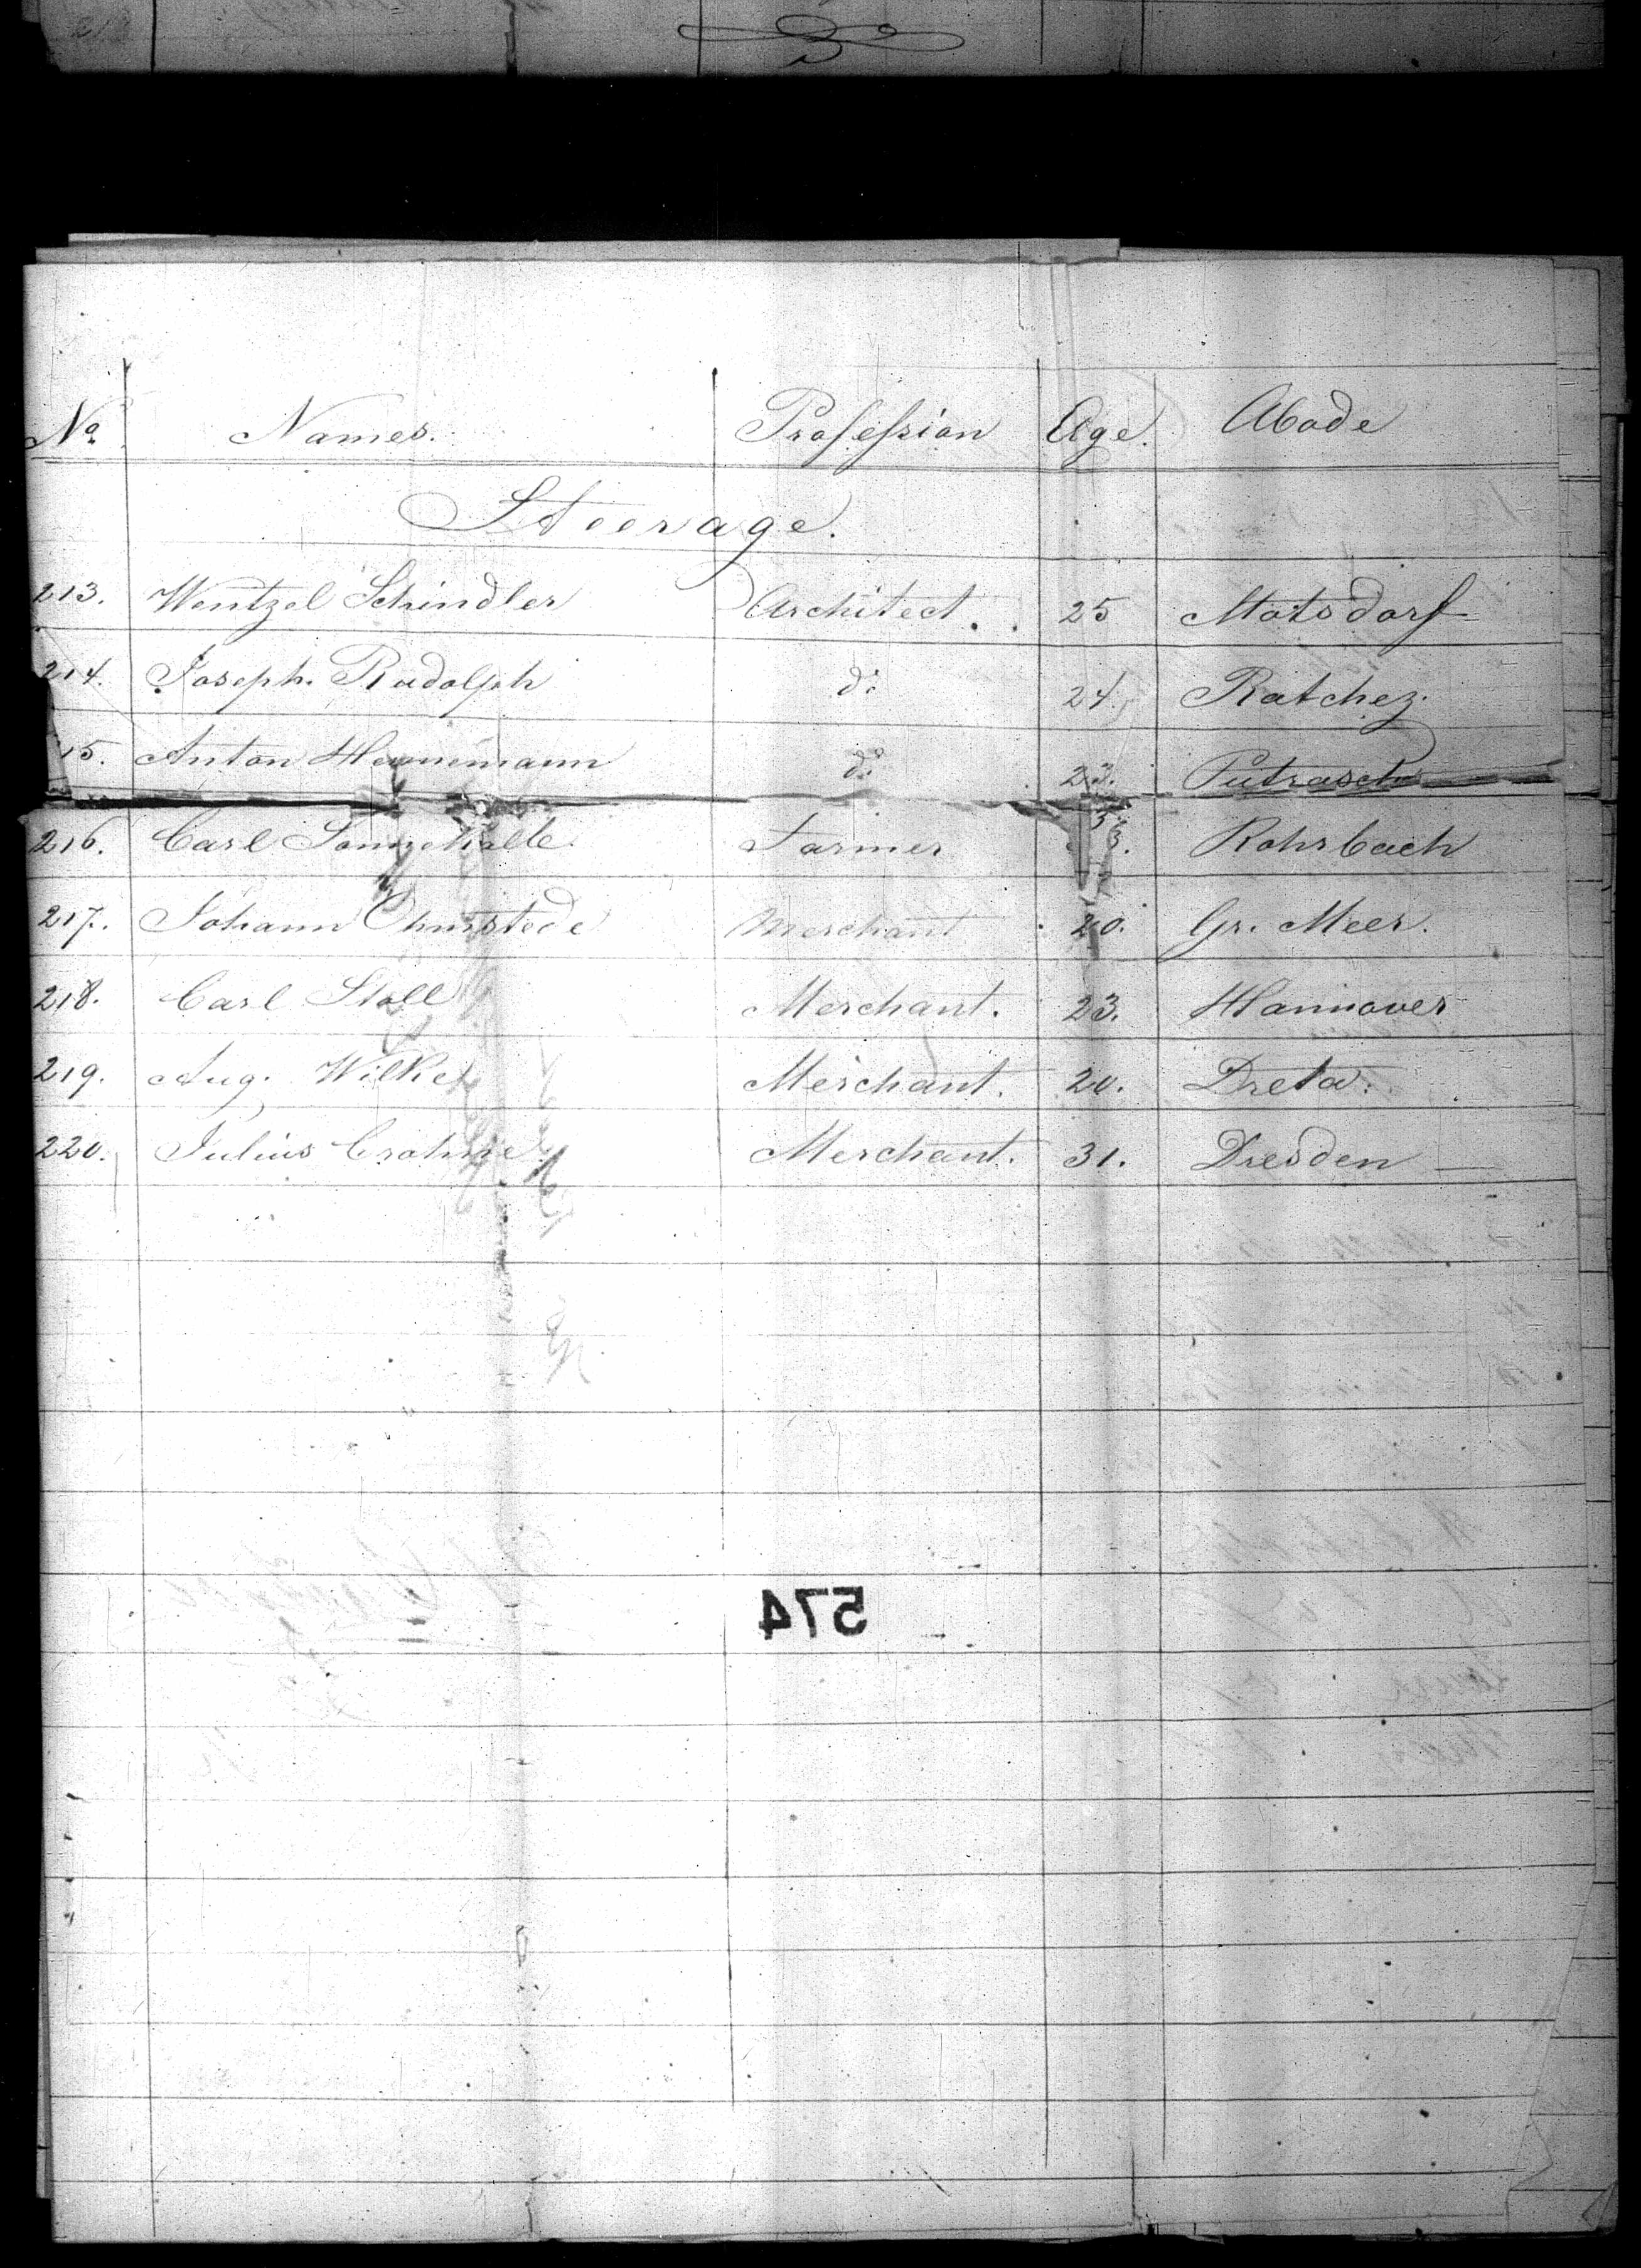 No. Names. Profession Age. Abode
Steerage.
213. Wentzel Schindler Architect. 25 Motsdorf
214. Joseph. Rudolph do 24. Ratchez.
15. Anton do 23. Putrasch
216. Carl Farmer Rohrbach
217. Johann Ohmstede Merchant 20. Gr. Meer.
218. Carl Stoll Merchant. 23. Hannover
219. Aug. Wilke Merchant. 20. Dreta.
220. Julius Crohne Merchant. 31. Dresden —
574